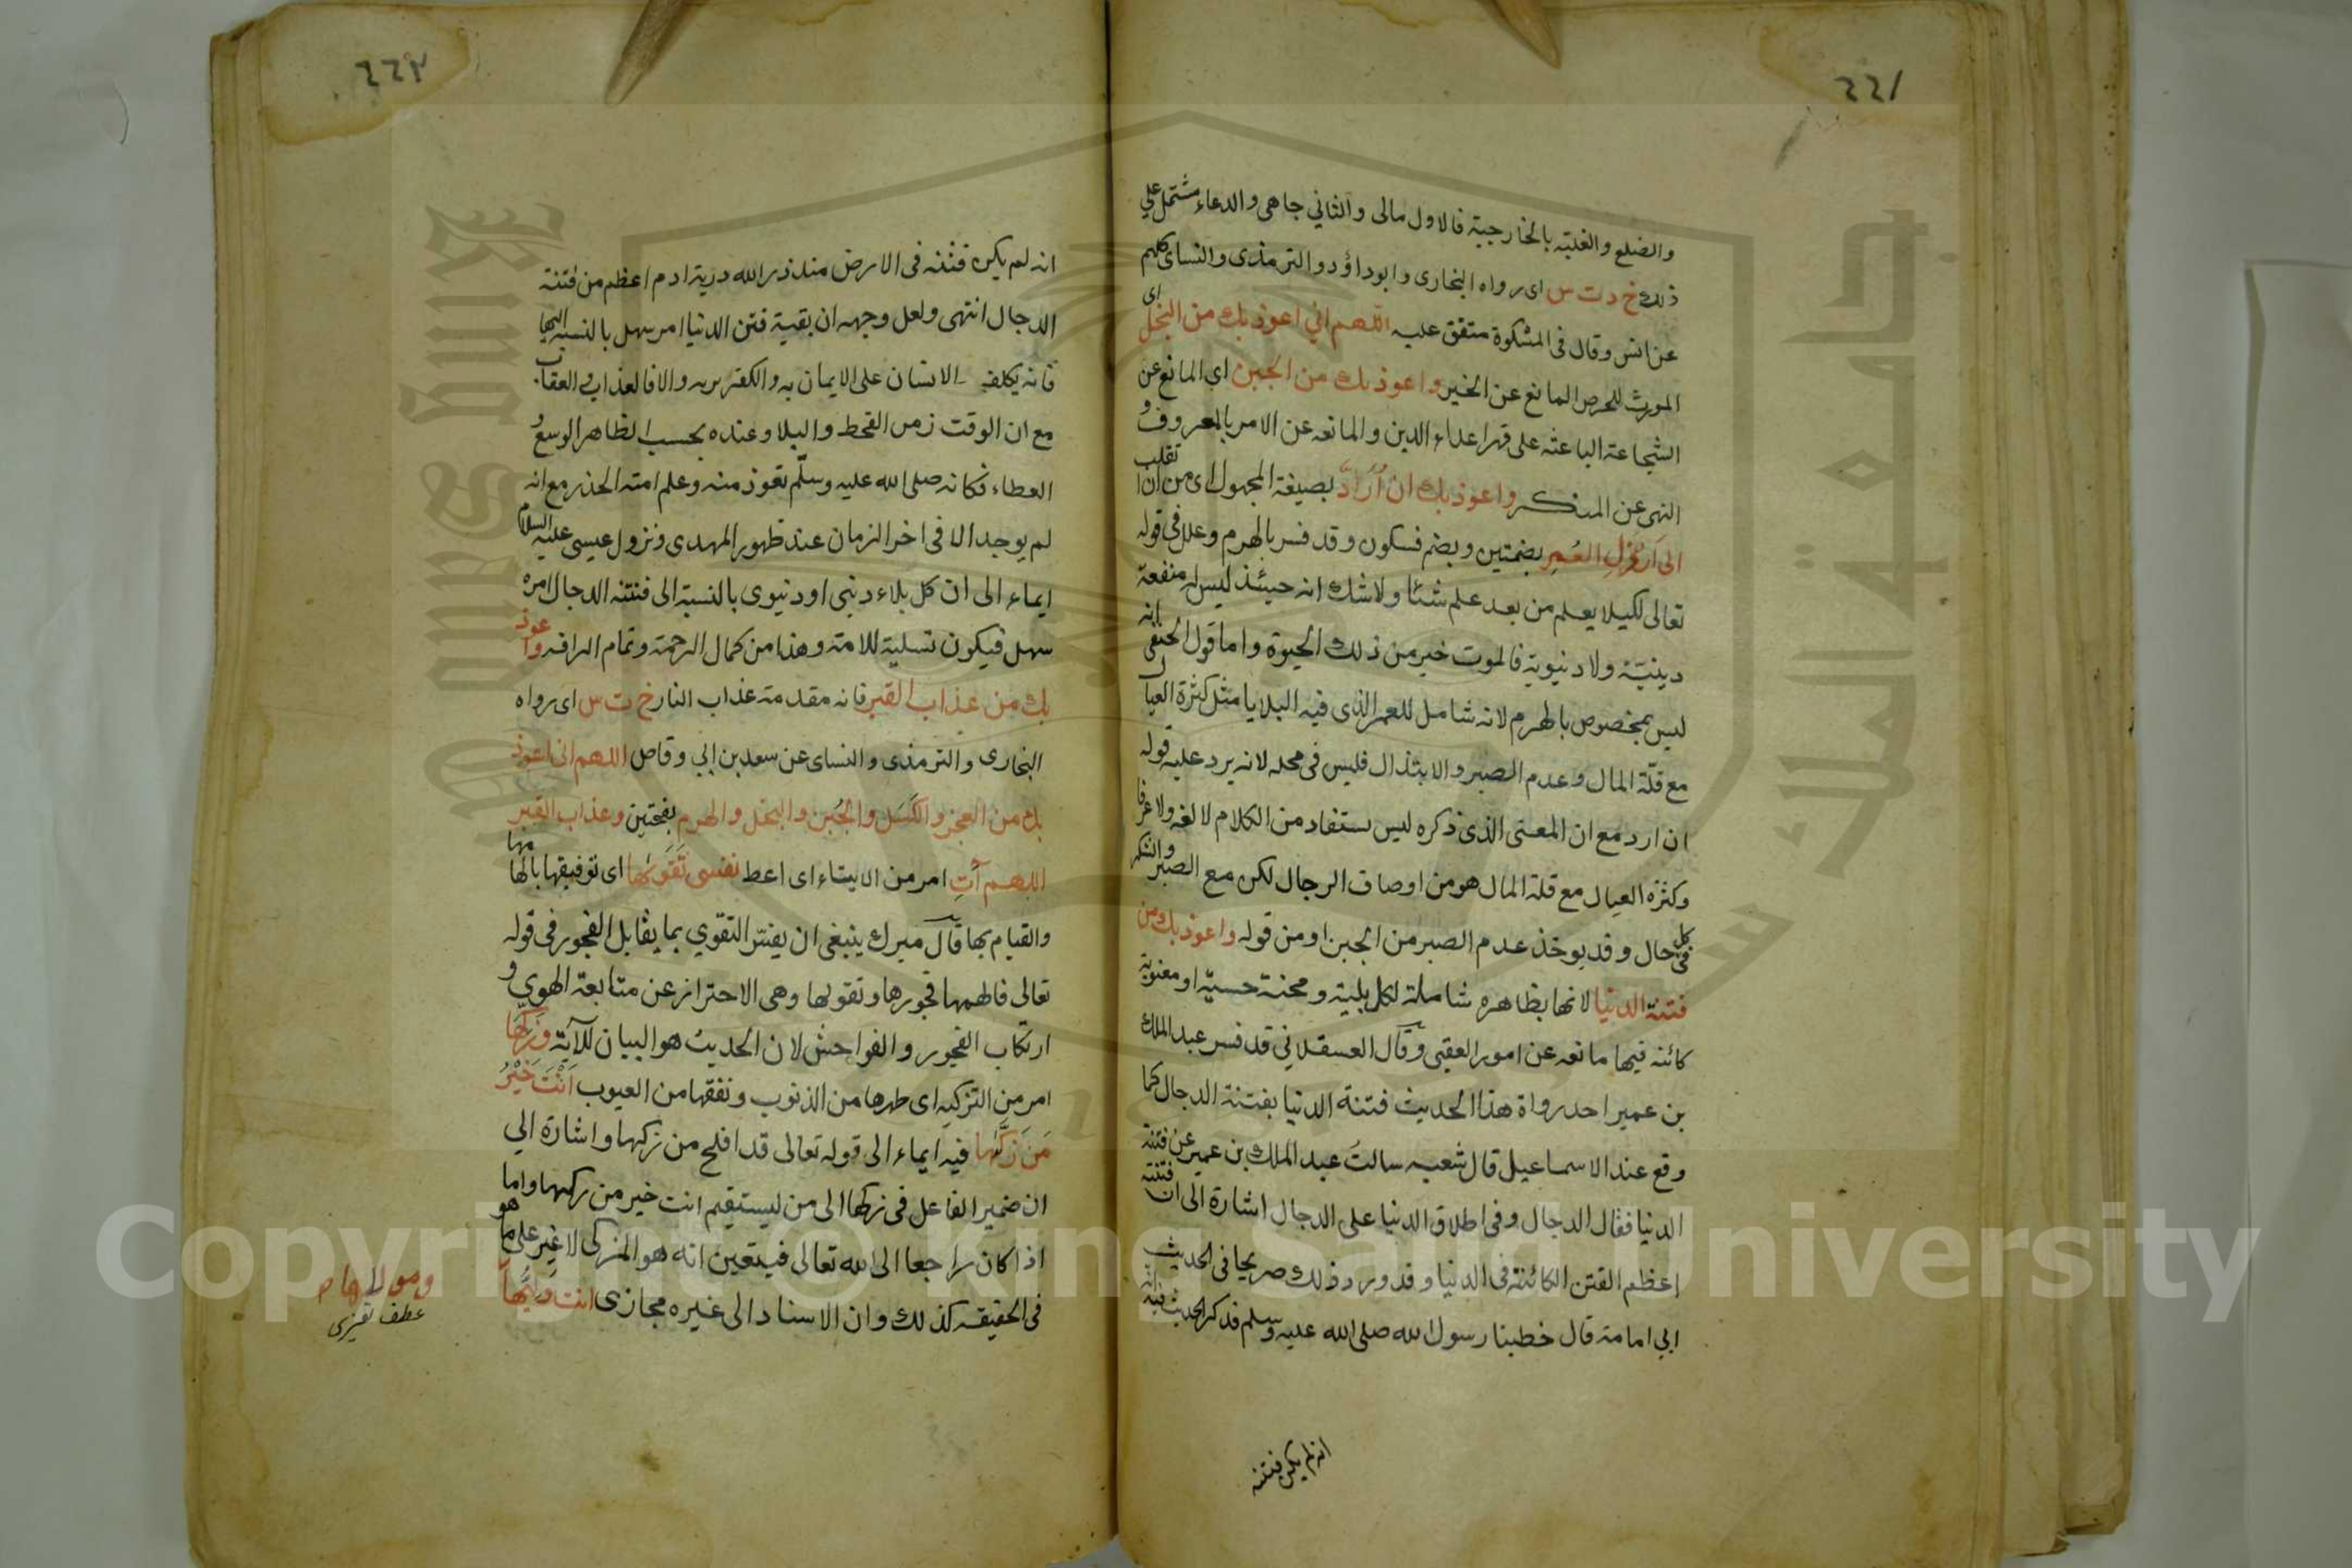 ٤٤١
والضلع والغلبة بالخارجية فالاول مالى والثاني جاهى والدعاء مشتمل على
ذلك خ د ت س اى رواه البخارى وابوداؤد والترمذى والنساى كلهم
عن انس وقال فى المشكوة متفق عليه اللهم اني اعوذ بك من البخل اى
المورث للحرص المانع عن الخير واعوذ بك من الجبن اي المانع عن
الشجاعة الباعثه على قهر اعداء الدين والمانعه عن الامر بالمعروف و
النهى عن المنكر واعوذ بك ان اُرَدَّ بصيغة المجهول اى من ان انقلب
الى ارذل العُمر بضمتين وبضم فسكون وقد فسر بالهرم وعلل فى قوله
تعالى لكيلا يعلم من بعد علم شئا ولاشك انه حينئذ ليس له منفعة
دينيّة ولا دنيوية فالموت خير من ذلك الحيوة واما قول الحنفى انه
ليس بمخصوص بالهرم لانه شامل للعمر الذى فيه البلايا مثل كثرة العيال
مع قلّة المال وعدم الصبر والابتذال فليس فى محله لانه يرد عليه قوله
ان ارد مع ان المعنى الذى ذكره ليس يستفاد من الكلام لا لغه ولا عرفا
وكثره العيال مع قلة المال هو من اوصاف الرجال لكن مع الصبر والشكر
فى كل حال وقد يوخذ عدم الصبر من الجبن او من قوله واعوذ بك من
فتنة الدنيا لانها بظاهره شاملة لكل بلية ومحنة حسيّة او معنوية
كائنه فيها مانعه عن امور العقبى وقال العسقلاني قد فسر عبد الملك
بن عمير احد رواة هذا الحديث فتنة الدنيا بفتنة الدجال كما
وقع عند الاسماعيل قال شعبه سالت عبد الملك بن عمير عن فتنة
الدنيا فقال الدجال وفى اطلاق الدنيا على الدجال اشارة الى ان فتنته
اعظم الفتن الكائنة فى الدنيا وقد ورد ذلك صريحا فى الحديث
ابي امامة قال خطبنا رسول الله صلى الله عليه وسلم فذكر الحديث فيه انه
انه لم يكن فتنه
٤٤٢
انه لم يكن فتنه فى الارض منذ ذرء الله درية ادم اعظم من فتنة
الدجال انتهى ولعل وجهه ان بقية فتن الدنيا امر سهل بالنسبه اليها
فانه يكلف الانسان على الايمان به والكفر بربه والا فالعذاب والعقاب
مع ان الوقت زمن القحط والبلا وعنده بحسب الظاهر الوسع و
العطاء فكانه صلى الله عليه وسلّم تعوذ منه وعلم امته الحذر مع انه
لم يوجد الا فى اخر الزمان عند ظهور المهدى ونزول عيسى عليه السلام
ايماء الى ان كل بلاء دينى او دنيوى بالنسبة الى فتنته الدجال امره
سهل فيكون تسلية للامة وهذا من كمال الرحمة وتمام الرافه واعوذ
بك من عذاب القبر فانه مقدمة عذاب النار خ ت س اى رواه
البخارى والترمذى والنساى عن سعد بن ابي وقاص اللهم انى اعوذ
بك من العجز والكَسَل والجُبن والبخل والهرم بفتحتين وعذاب القبر
اللهم آتِ امر من الايتاء اى اعط نفسى تَقَوٰىها اى توفيقها بالهامها
والقيام بها قال ميرك ينبغى ان يفسّر التقوي بما يقابل الفجور فى قوله
تعالى فالهمها فجورها وتقوىها وهى الاحتراز عن متابعة الهوي و
ارتكاب الفجور والفواحش لان الحديث هو البيان للآية وزكّها
امر من التزكيه اى طهرها من الذنوب ونقها من العيوب اَنْتَ خَيْرُ
مَن زَكّٰها فيه ايماء الى قوله تعالى قد افلح من زكها واشارة الي
ان ضمير الفاعل فى زكها الى من ليستقيم انت خير من زكها واما
اذا كان راجعا الى الله تعالى فيتعين انه هو المزكى لا غير على ما هو
فى الحقيقه كذلك وان الاسناد الى غيره مجازى انت وليُّها
ومولاها
عطف تفسيرى
جامعة الملك سعود
King Saud University
1957
Copyright © King Saud University